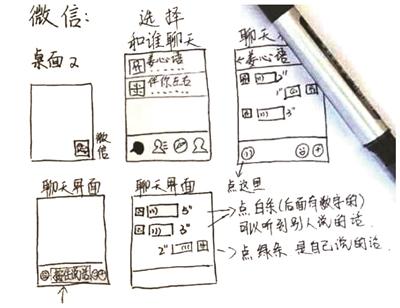 微信:
选择
和谁聊天
聊天
桌面2
姜心语
伴你左右
<姜心语
2"
1"
3"
微信
点这里
聊天界面
聊天界面
5"
3"
2"
按住说话
点白条(后面有数字的)
可以听到别人说的话.
点绿条 是自己说的话.